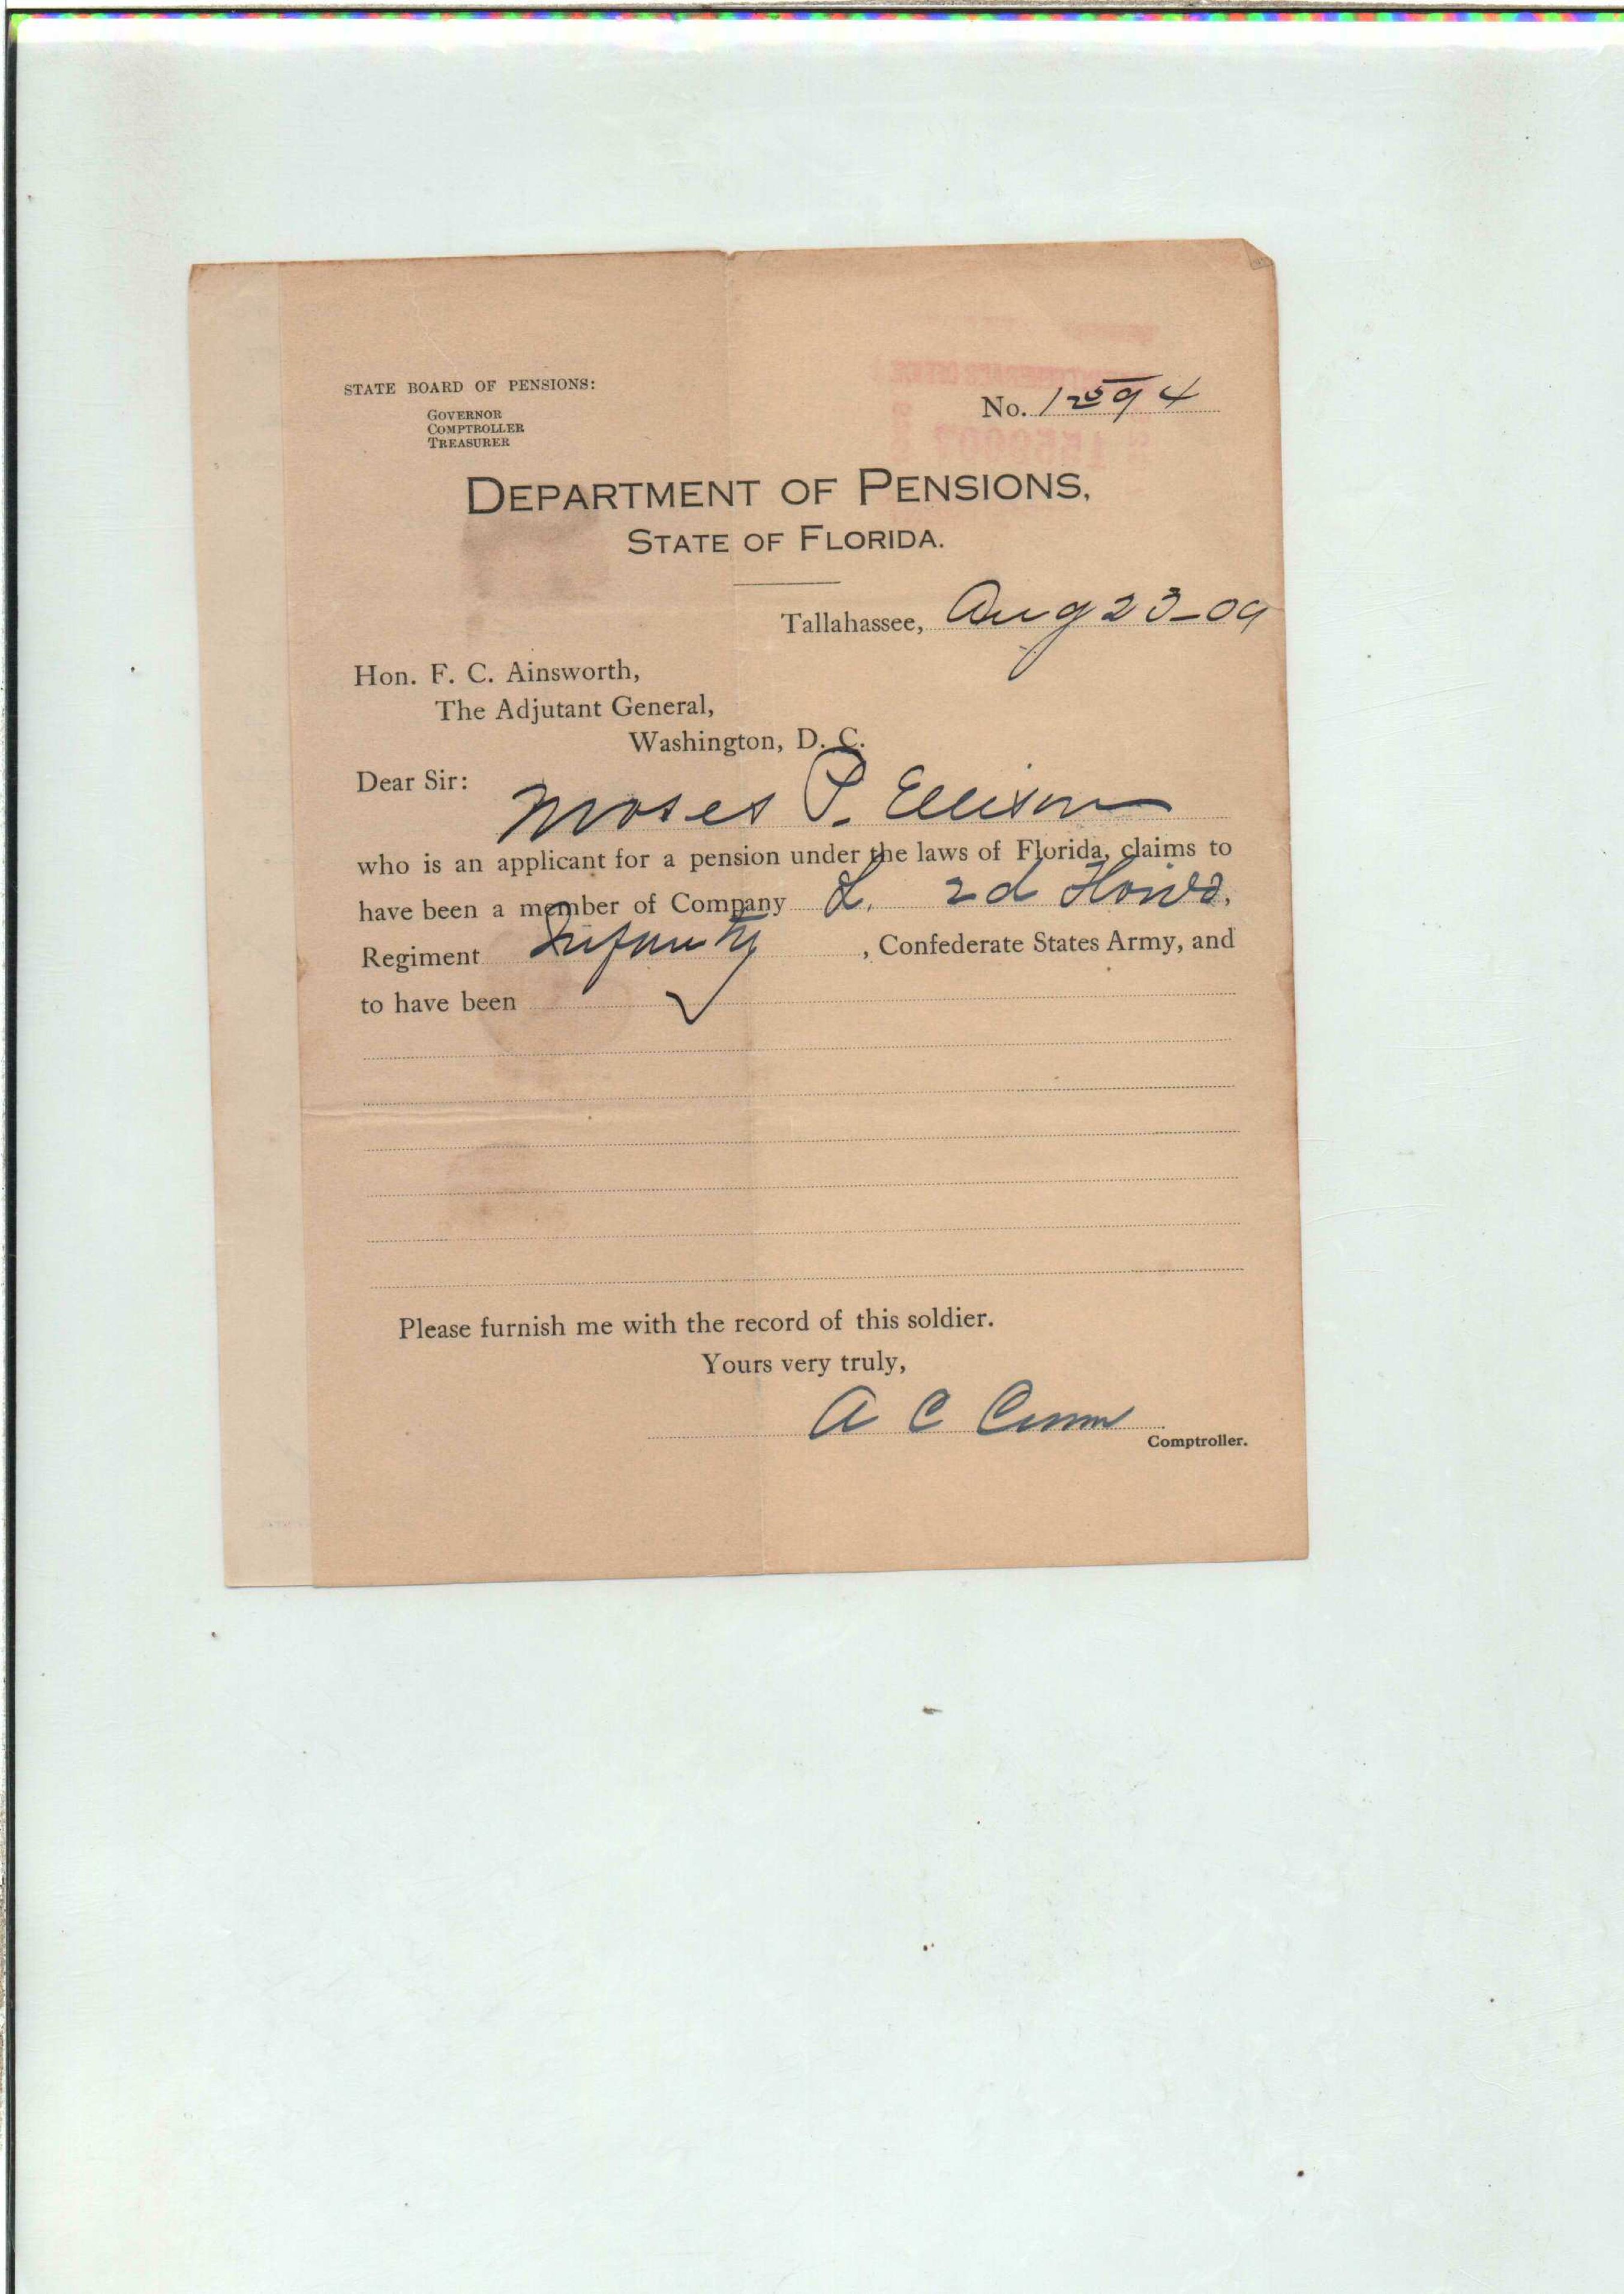 STATE BOARD OF PENSIONS:
GOVERNOR
COMPTROLLER
TREASURER
No. 12594
DEPARTMENT OF PENSIONS,
STATE OF FLORIDA.
Tallahassee, Aug 23-09
Hon. F. C. Ainsworth,
The Adjutant General,
Washington, D. C.
Dear Sir:
Moses P. Ellison
who is an applicant for a pension under the laws of Florida, claims to
have been a member of Company L. 2d Florida,
Regiment Infantry, Confederate States Army, and
to have been
Please furnish me with the record of this soldier.
Yours very truly,
A C Croom
Comptroller.